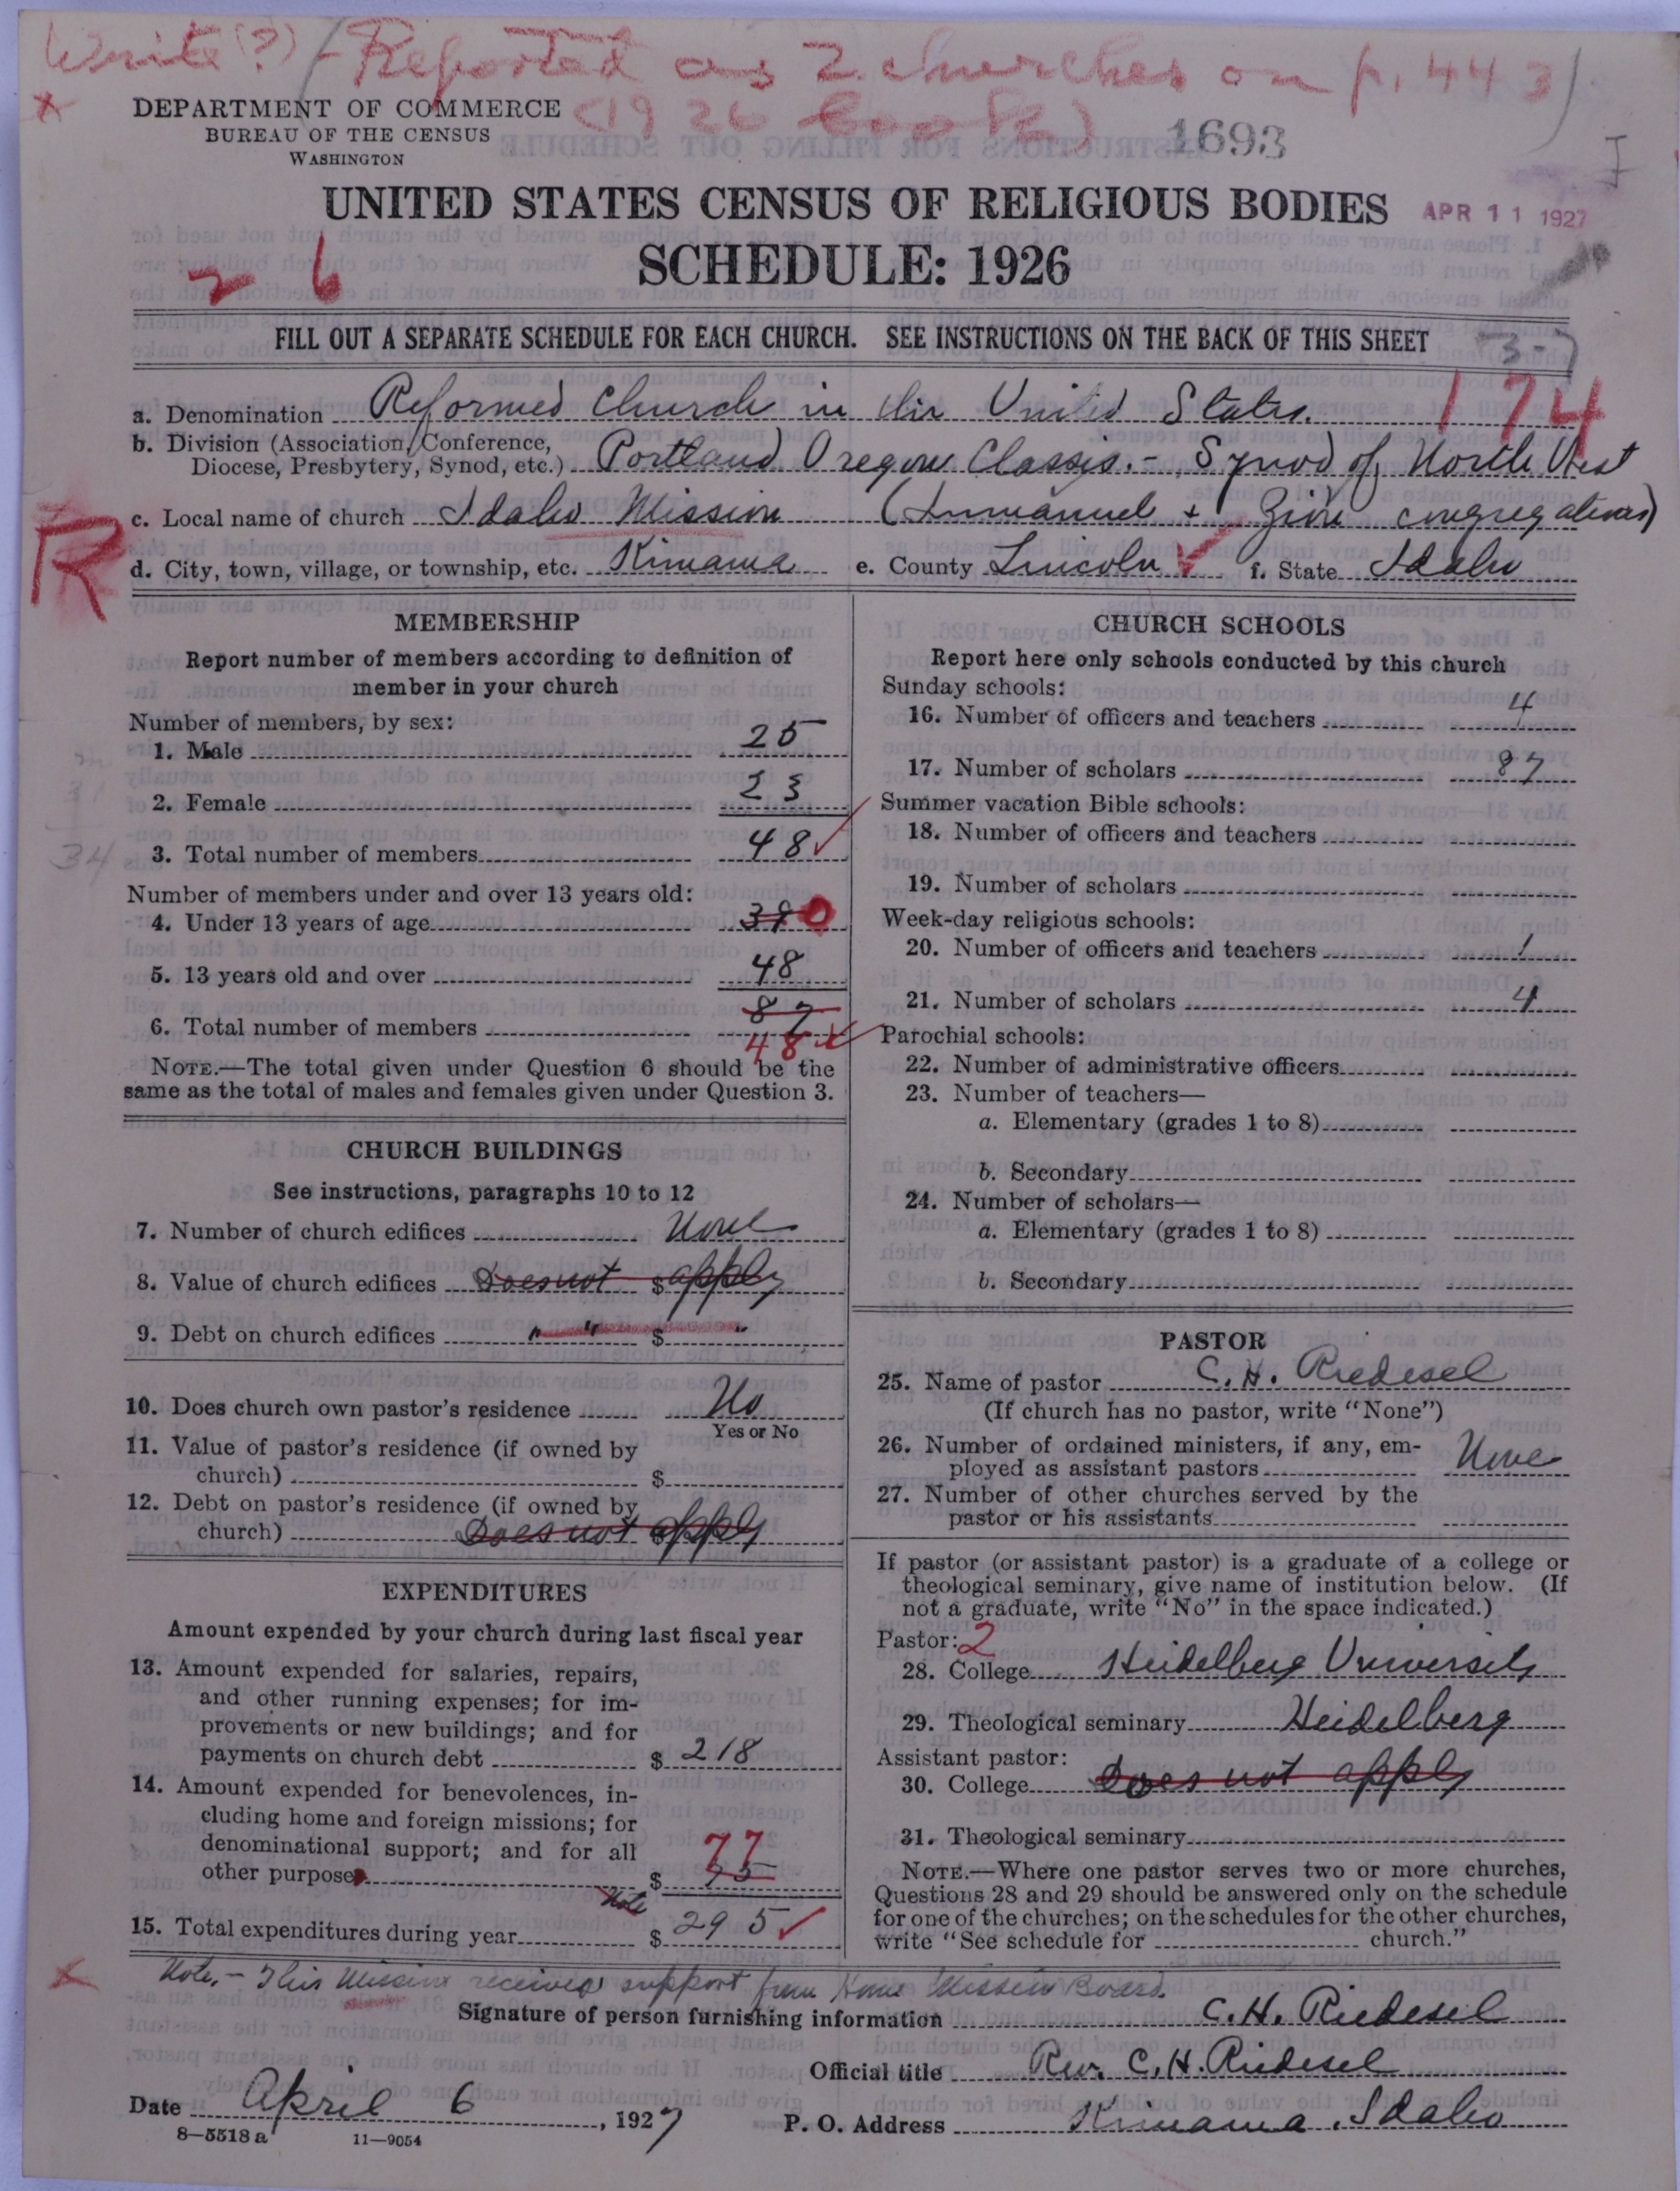 Write (?) (Reported as 2 churches on p. 443)
(1926 book)
DEPARTMENT OF COMMERCE
BUREAU OF THE CENSUS
WASHINGTON
1693
UNITED STATES CENSUS OF RELIGIOUS BODIES
APR 11 1927
SCHEDULE: 1926
26
FILL OUT A SEPARATE SCHEDULE FOR EACH CHURCH. SEE INSTRUCTIONS ON THE BACK OF THIS SHEET
3-7
174
a. Denomination Reformed Church in the United States.
b. Division (Association, Conference,
Diocese, Presbytery, Synod, etc.) Portland Oregon Classis. - Synod of North West
c. Local name of church Idaho Mission (Immanuel + Zion congregations)
R
d. City, town, village, or township, etc. Kimama e. County Lincoln f. State Idaho
MEMBERSHIP
Report number of members according to definition of
member in your church
Number of members, by sex:
1. Male 25
2. Female 23
3. Total number of members 48
34
Number of members under and over 13 years old:
4. Under 13 years of age 39 0
5. 13 years old and over 48
6. Total number of members 87
48
NOTE.—The total given under Question 6 should be the
same as the total of males and females given under Question 3.
CHURCH BUILDINGS
See instructions, paragraphs 10 to 12
7. Number of church edifices None
8. Value of church edifices Does not $ apply
9. Debt on church edifices " " $ "
10. Does church own pastor's residence No
Yes or No
11. Value of pastor's residence (if owned by
church) $
12. Debt on pastor's residence (if owned by
church) Does not $ apply
EXPENDITURES
Amount expended by your church during last fiscal year
13. Amount expended for salaries, repairs,
and other running expenses; for im-
provements or new buildings; and for
payments on church debt $ 218
14. Amount expended for benevolences, in-
cluding home and foreign missions; for
denominational support; and for all
other purposes $ 75
77
Note
15. Total expenditures during year $ 295
CHURCH SCHOOLS
Report here only schools conducted by this church
Sunday schools:
16. Number of officers and teachers 4
17. Number of scholars 87
Summer vacation Bible schools:
18. Number of officers and teachers
19. Number of scholars
Week-day religious schools:
20. Number of officers and teachers 1
21. Number of scholars 4
Parochial schools:
22. Number of administrative officers
23. Number of teachers—
a. Elementary (grades 1 to 8)
b. Secondary
24. Number of scholars—
a. Elementary (grades 1 to 8)
b. Secondary
PASTOR
25. Name of pastor C. H. Riedesel
(If church has no pastor, write "None")
26. Number of ordained ministers, if any, em-
ployed as assistant pastors None
27. Number of other churches served by the
pastor or his assistants
If pastor (or assistant pastor) is a graduate of a college or
theological seminary, give name of institution below. (If
not a graduate, write "No" in the space indicated.)
Pastor: 2
28. College Heidelberg University
29. Theological seminary Heidelberg
Assistant pastor:
30. College Does not apply
31. Theological seminary
NOTE.—Where one pastor serves two or more churches,
Questions 28 and 29 should be answered only on the schedule
for one of the churches; on the schedules for the other churches,
write "See schedule for church."
Note. - This Mission receives support from Home Mission Board.
Signature of person furnishing information C. H. Riedesel
Official title Rev. C. H. Riedesel
Date April 6, 1927 P. O. Address Kimama, Idaho
8—5518 a 11—9054